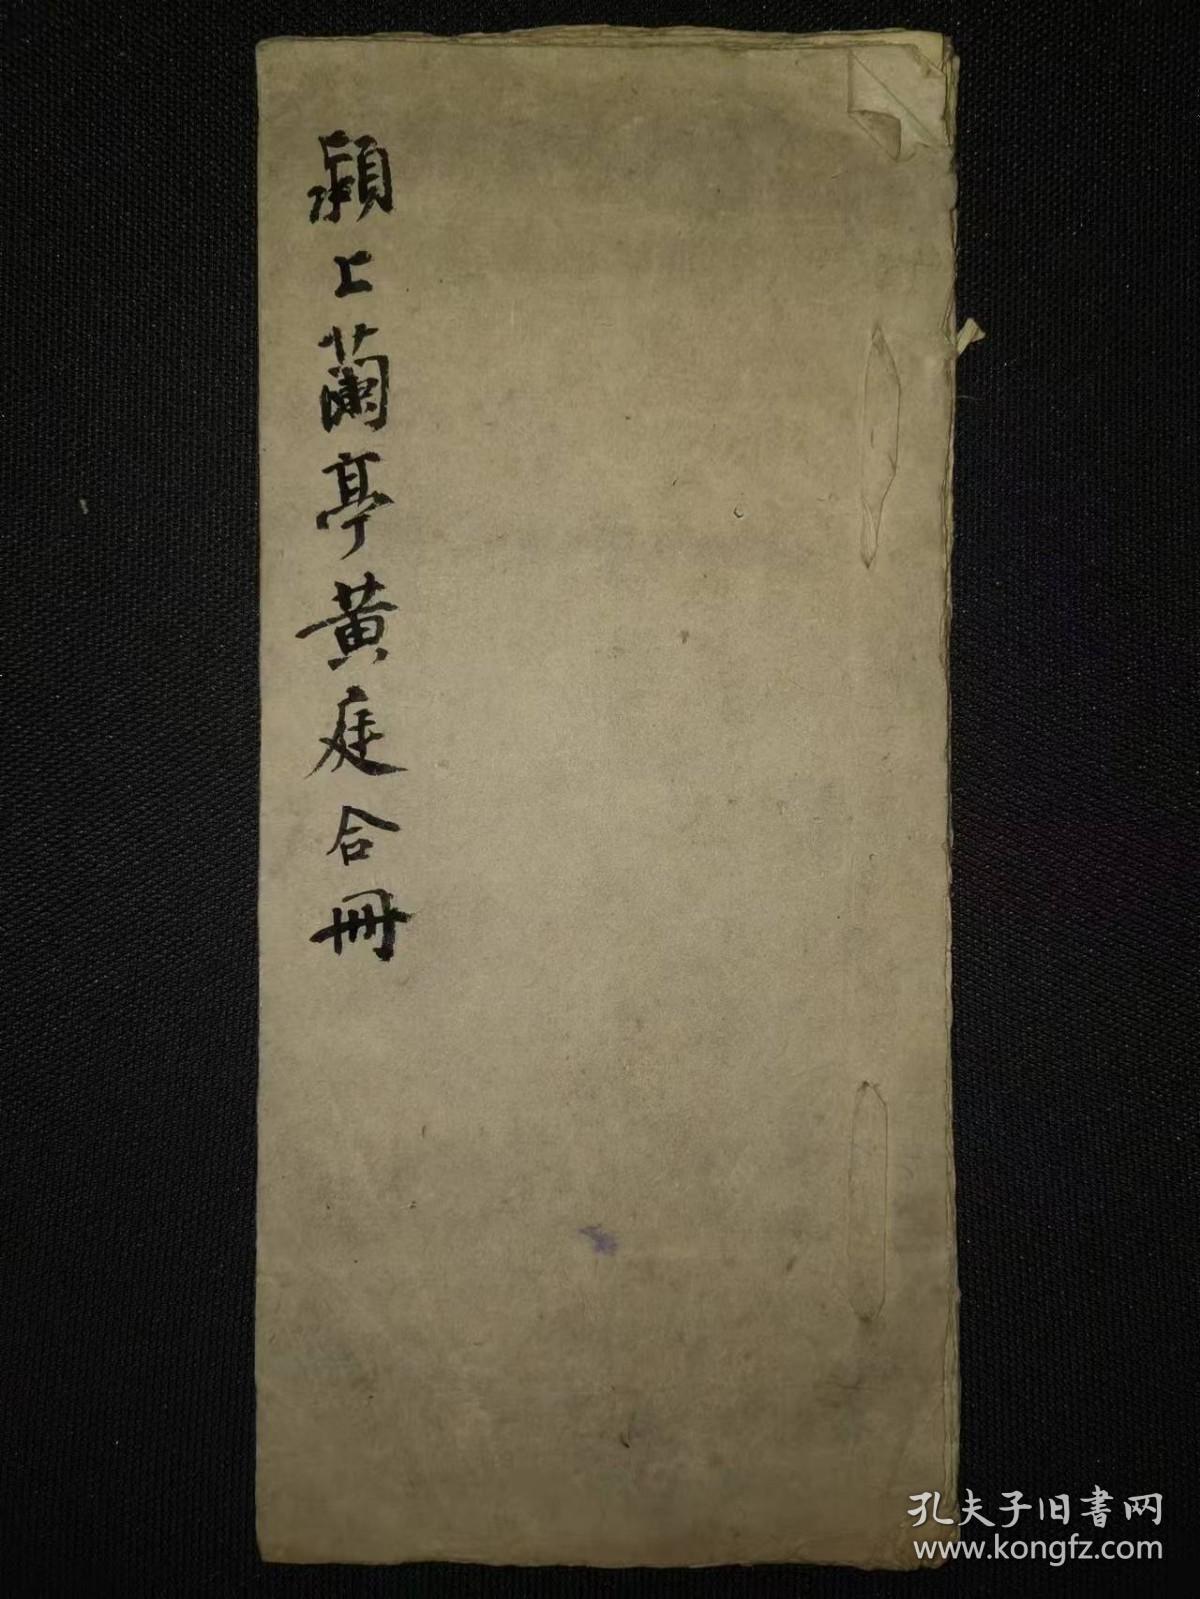 潁上蘭亭黄庭合冊
孔夫子旧書网
www.kongfz.com